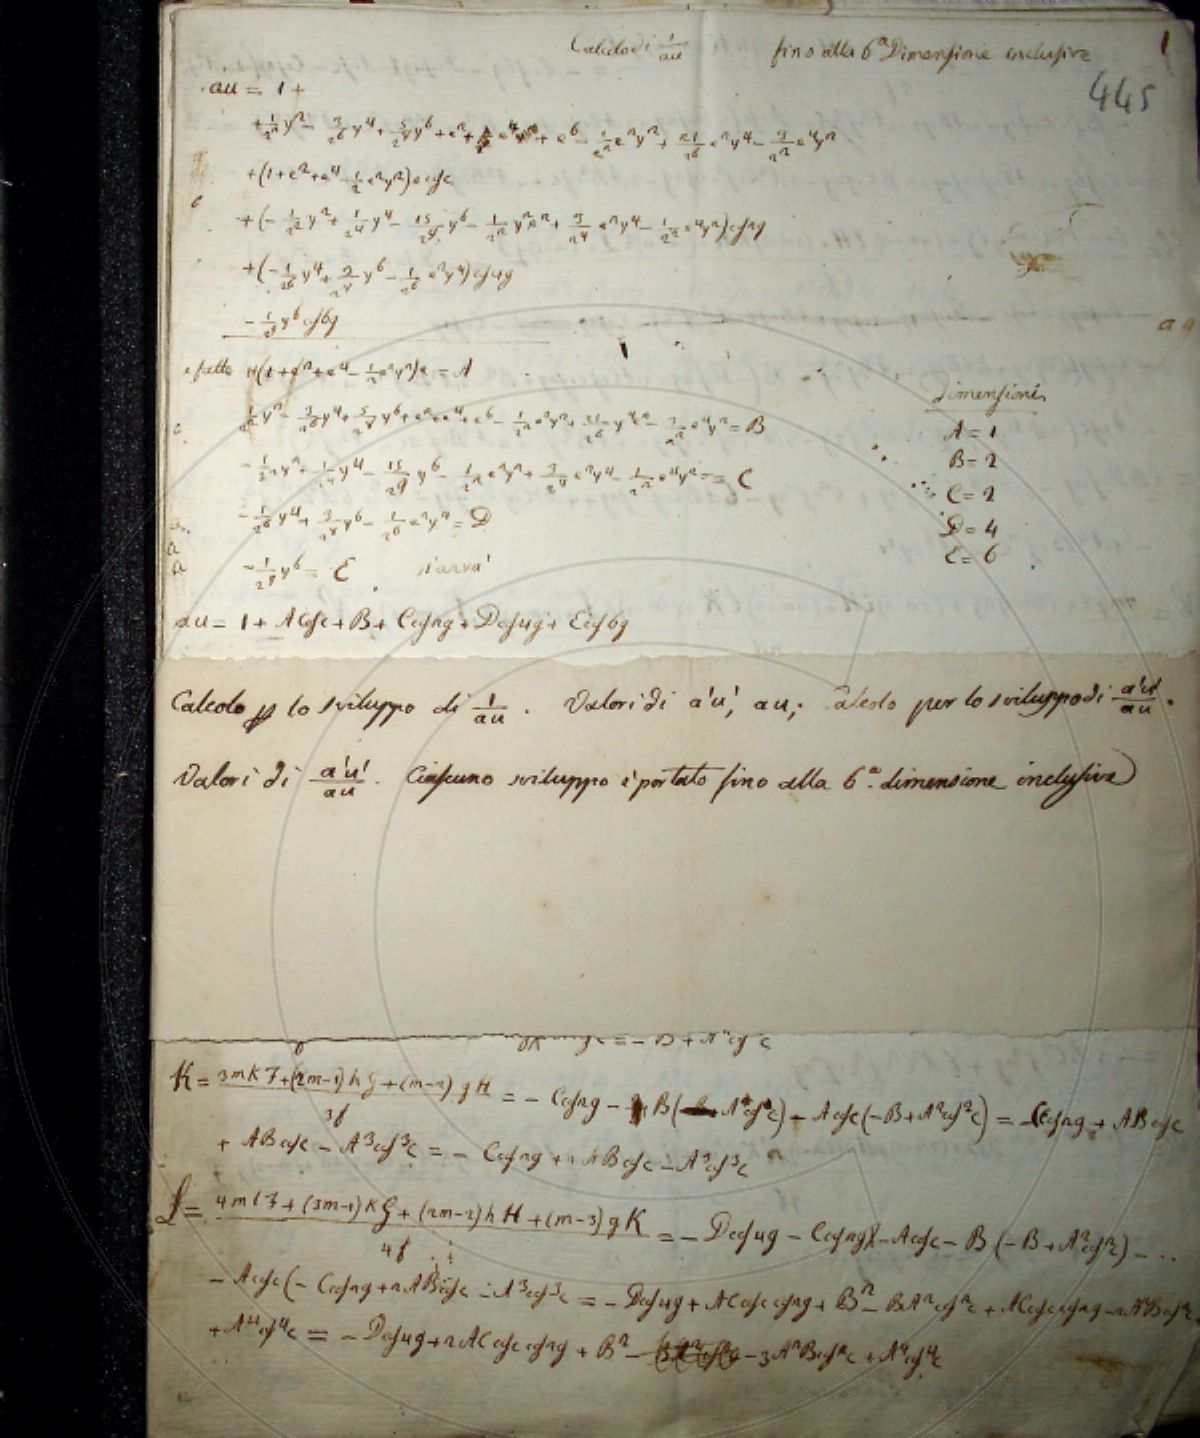 Calcolo di 1/au fino alla 6ª Dimensione inclusive 1
445
au = 1 +
+ 1/2² y² - 3/2⁶ y⁴ + 5/2⁸ y⁶ + e² + e⁴ + e⁶ - 1/2² e²y² + 21/2⁶ e²y⁴ - 3/2² e⁴y²
+ (1 + e² + e⁴ - 1/2 e²y²) e cos c
+ (- 1/2² y² + 1/2⁴ y⁴ - 15/2⁹ y⁶ - 1/2² y²e² + 3/2⁴ e²y⁴ - 1/2² e⁴y²) cos 2g
+ (- 1/2⁶ y⁴ + 3/2⁸ y⁶ - 1/2⁶ e²y⁴) cos 4g
- 1/2⁹ y⁶ cos 6g
e fatto (1 + e² + e⁴ - 1/2 e²y²) e = A
1/2² y² - 3/2⁶ y⁴ + 5/2⁸ y⁶ + e² + e⁴ + e⁶ - 1/2² e²y² + 21/2⁶ y⁴e² - 3/2² e⁴y² = B
- 1/2² y² + 1/2⁴ y⁴ - 15/2⁹ y⁶ - 1/2² e²y² + 3/2⁴ e²y⁴ - 1/2² e⁴y² = C
- 1/2⁶ y⁴ + 3/2⁸ y⁶ - 1/2⁶ e²y⁴ = D
- 1/2⁹ y⁶ = E s'avrà
Dimensioni
A = 1
B = 2
C = 2
D = 4
E = 6
au = 1 + A cos c + B + C cos 2g + D cos 4g + E cos 6g
Calcolo p lo sviluppo di 1/au. Valori di a'u', au; Calcolo per lo sviluppo di a'u'/au.
Valori di a'u'/au. Ciascuno sviluppo è portato fino alla 6ª dimensione inclusive)
= - B + A² cos² c
K = 3mkF + (2m-1)hG + (m-2)gH / 3f = - C cos 2g - B( A² cos² c) - A cos c (-B + A² cos² c) = - C cos 2g + AB cos c
+ AB cos c - A³ cos³ c = - C cos 2g + 2AB cos c - A³ cos³ c
L = 4mlF + (3m-1)kG + (2m-2)hH + (m-3)gK / 4f = - D cos 4g - C cos 2g)(-A cos c - B (-B + A² cos² c) - ..
- A cos c (- C cos 2g + 2AB cos c - A³ cos³ c = - D cos 4g + AC cos c cos 2g + B² - BA² cos² c + AC cos c cos 2g - 2A²B cos² c
+ A⁴ cos⁴ c = - D cos 4g + 2AC cos c cos 2g + B² - 3A²B cos² c + A⁴ cos⁴ c